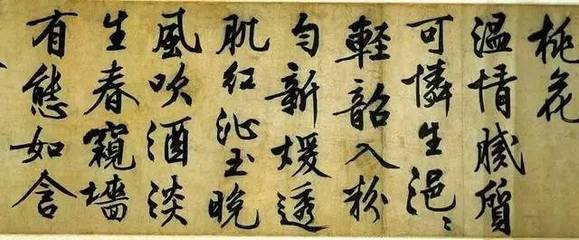 桃花
溫情膩質
可憐生浥〻
輕韶入粉
勻新煖透
肌紅沁玉晚
風吹酒淡
生春窺墻
有態如含